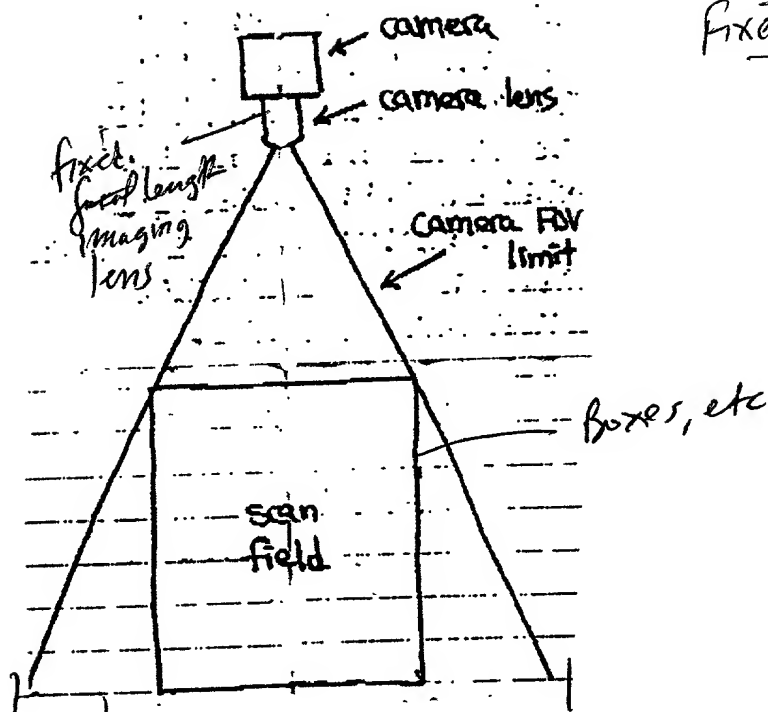 camera
Fixe
camera lens
fixed
focal length
imaging
lens
camera FOV
limit
Boxes, etc
scan
field